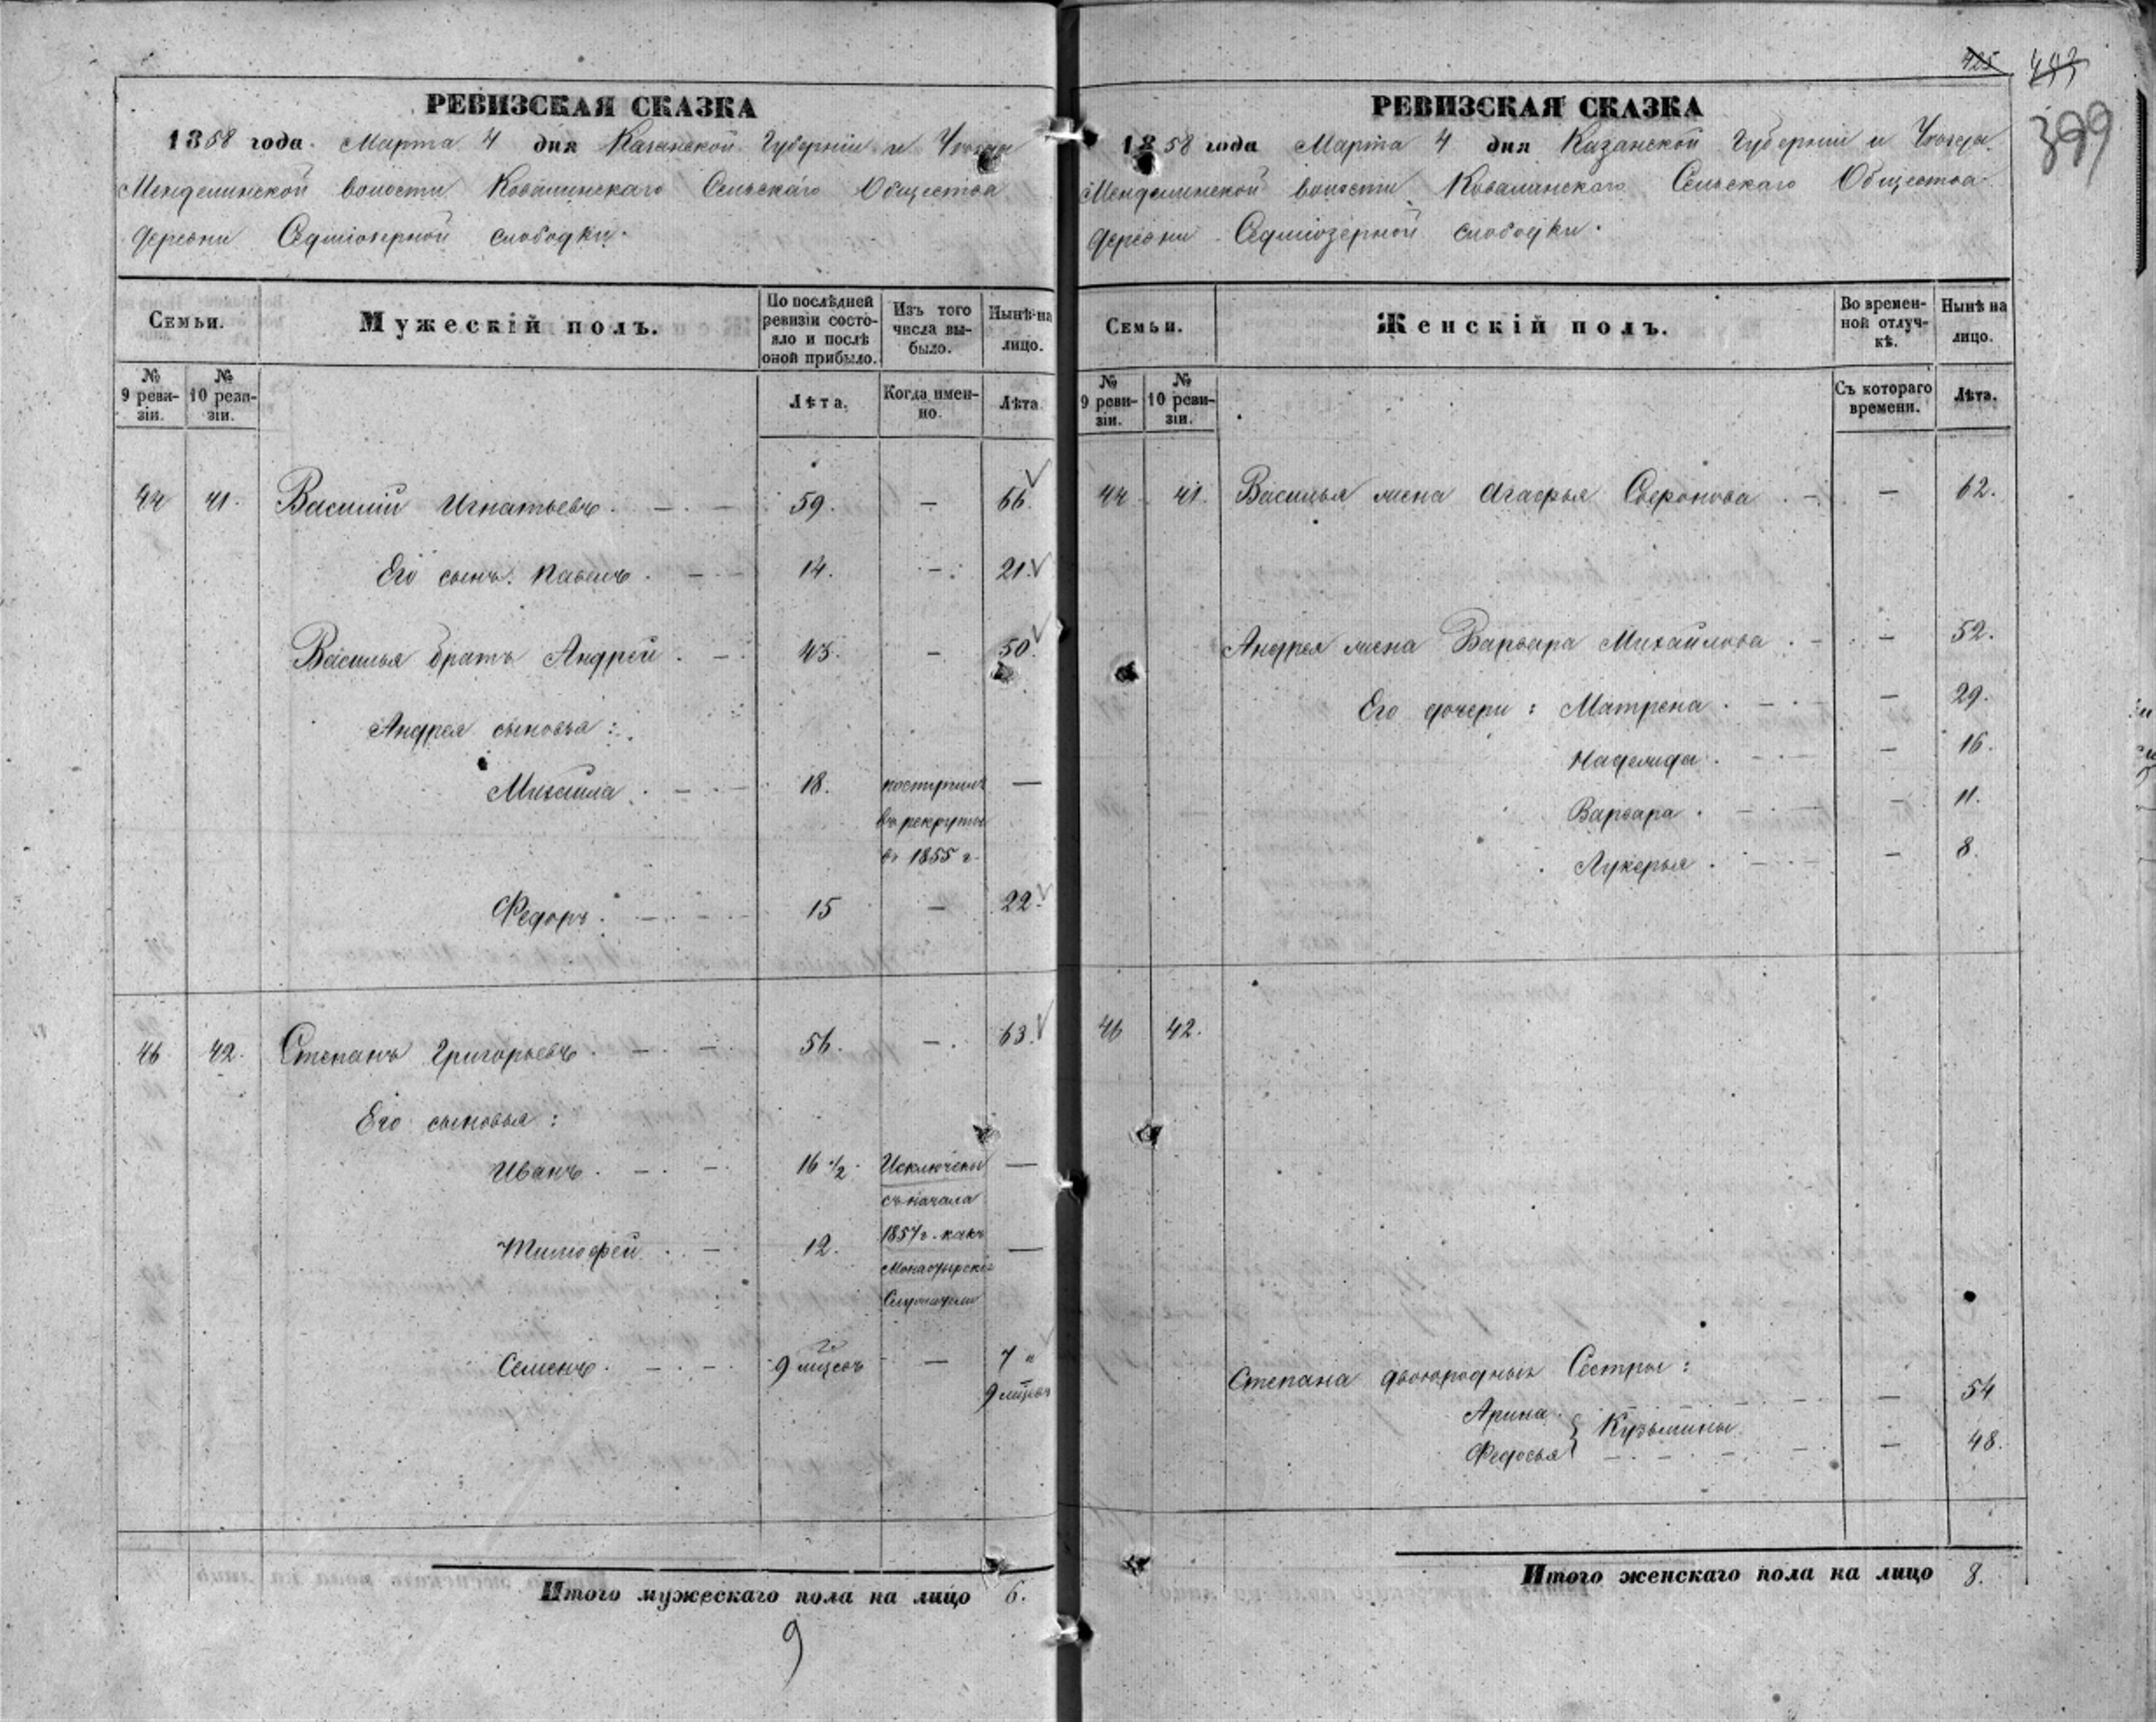 РЕВИЗСКАЯ СКАЗКА
1858 года. Марта 4 дня Казанской Губерніи и Уѣзда
Менделинской волости Ковалинскаго Сельскаго Общества
деревни Седміозерной слободки.
Семьи.
Мужескій полъ.
По послѣдней ревизіи состояло и послѣ оной прибыло.
Изъ того числа выбыло.
Нынѣ на лицо.
№ 9 ревизіи.
№ 10 ревизіи.
Лѣта.
Когда именно.
Лѣта
44 41. Василій Игнатьевъ. 59. — 66.
Его сынъ. Павелъ. 14. — 21.
Василья братъ Андрей. 43. — 50.
Андрея сыновья:
Михаила 18. поступилъ —
въ рекруты
въ 1855 г.
Федоръ. 15 — 22.
46 42. Степанъ Григорьевъ. 56. — 63.
Его сыновья:
Иванъ. 16 1/2. Исключены —
съ начала
Тимофей. 12. 1857 г. какъ —
Монастырскіе
Служители
Семенъ. 9 мцсовъ — 7 "
9 мцсовъ
Итого мужескаго пола на лицо 6.
9
425
399
РЕВИЗСКАЯ СКАЗКА
1858 года Марта 4 дня Казанской Губерніи и Уѣзда
Менделинской волости Ковалинскаго Сельскаго Общества
деревни Седміозерной слободки.
Семьи.
Женскій полъ.
Во временной отлучкѣ.
Нынѣ на лицо.
№ 9 ревизіи.
№ 10 ревизіи.
Съ котораго времени.
Лѣта.
44 41. Василья жена Агафья Сафронова. — 62.
Андрея жена Варвара Михайлова. — 52.
Его дочери: Матрена. — 29.
Надежда. — 16.
Варвара. — 11.
Лукерья. — 8.
46 42.
Степана двоюродныя Сестры:
Арина } Кузьмины — 54
Федосья — 48.
Итого женскаго пола на лицо 8.